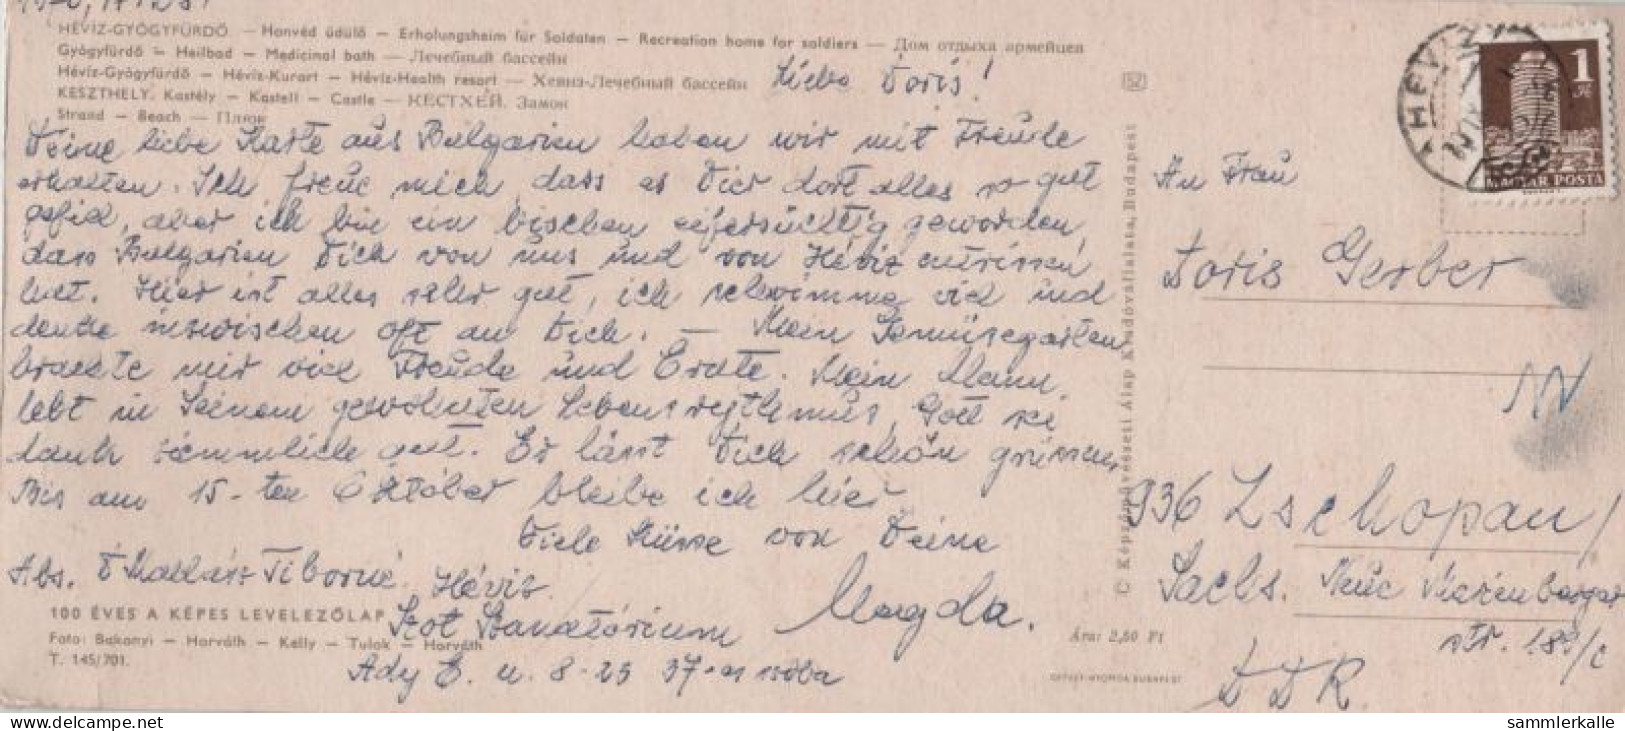 HÉVÍZ-GYÓGYFÜRDŐ. — Honvéd üdülő — Erholungsheim für Soldaten — Recreation home for soldiers — Дом отдыха армейцев
Gyógyfürdő — Heilbad — Medicinal bath — Лечебный бассейн
Hévíz-Gyógyfürdő — Hévíz-Kurort — Hévíz-Health resort — Хевиз-Лечебный бассейн
KESZTHELY. Kastély — Kastell — Castle — КЕСТХЕЙ. Замок
Strand — Beach — Пляж
Liebe Doris!
Deine liebe Karte aus Bulgarien haben wir mit Freude
erhalten. Ich freue mich, dass es Dier dort alles so gut
gefiel, aber ich bin ein bischen eifersüchtig geworden,
dass Bulgarien Dich von uns und von Hévíz entrissen
hat. Hier ist alles sehr gut, ich schwimme viel und
denke inzwischen oft an Dich. — Mein Gemüsegarten
brachte mir viel Freude und Ernte. Mein Mann
lebt in Seinem gewohnten Lebensreythmus, Gott sei
dank ziemmlich gut. Er lässt Dich schön grüssen,
Bis am 15-ten Október bleibe ich hier
Viele Küsse von Deine
Magda.
Abs. Tiborné. Hévíz.
Szot Szanatórium
Ady E. u. 8-23 37-es szóba
100 ÉVES A KÉPES LEVELEZŐLAP
Foto: Bakonyi — Horváth — Kelly — Tulok — Horváth
T. 145/701.
© Képzőművészeti Alap Kiadóvállalata, Budapest
Ára: 2,50 Ft
OFFSET-NYOMDA BUDAPEST
HÉVÍZ
1 Ft
MAGYAR POSTA
An Frau
Doris Gerber
936 Zschopau/
Sachs. Neue Marienberger
str. 189/c
DDR.
sammlerkalle